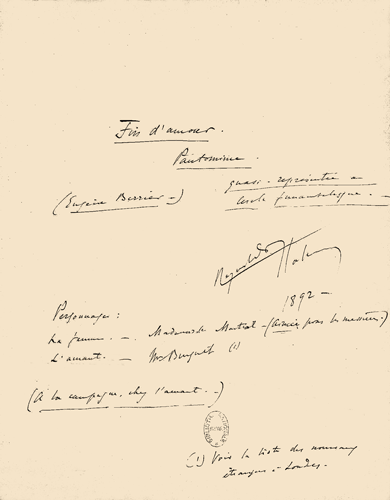 Fin d'amour.
Pantomime.
(Eugène Berrier -)
quasi-représentée a
cercle funambulesque -
Reynaldo Hahn
1892 -
Personnages :
La femme - . Madame de Martrat - ( pour les messieurs)
L'amant. - Mr (1)
(A la campagne, chez l'amant. -)
(1) Voir la liste des nouveaux
étrangers à Londres.